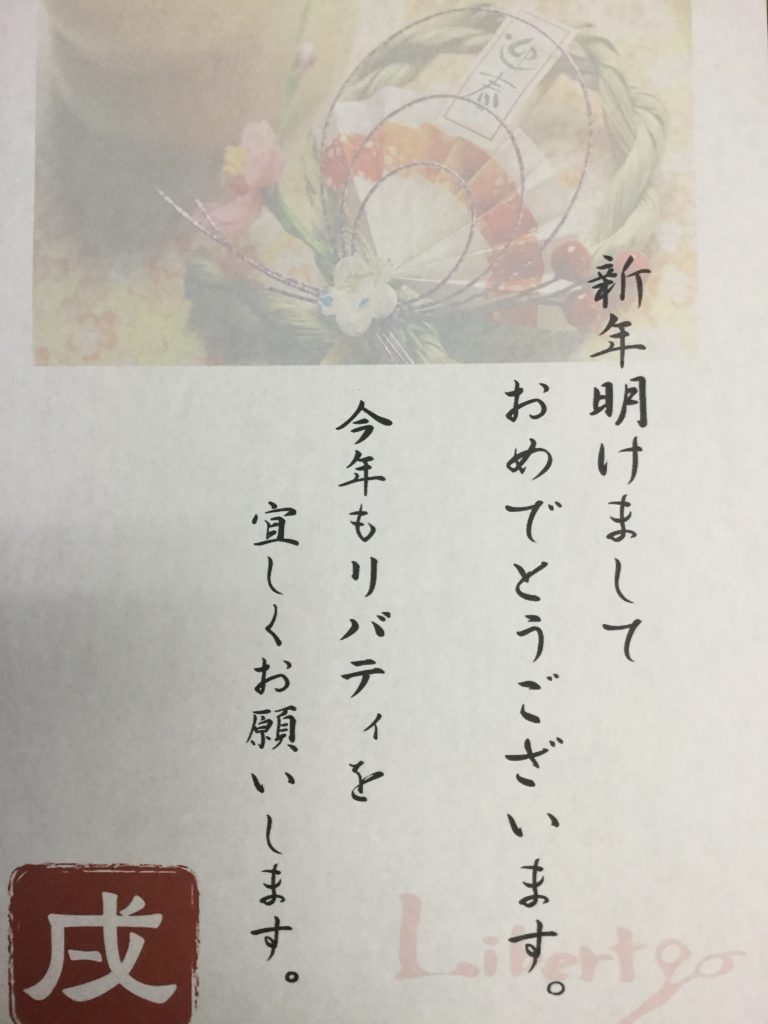 迎春
新年明けまして
おめでとうございます。
今年もリバティを
宜しくお願いします。
戌